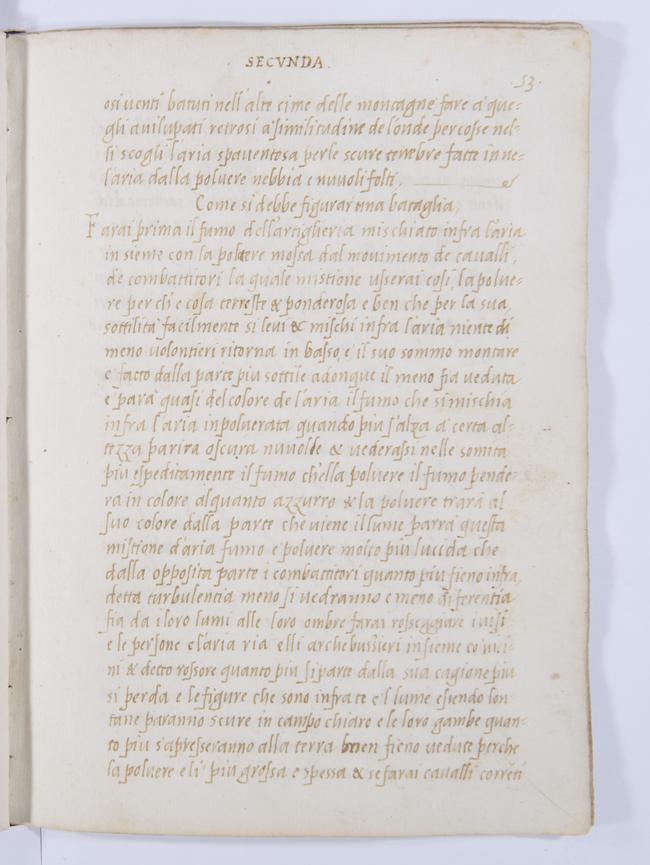 SECVNDA.
53.
osi uenti batuti nell'alte cime delle montagne fare a' que=
gli auilupati retrosi a similitudine de l'onde percosse nel=
li scogli l'aria spauentosa perle scure tenebre fatte in ne=
l'aria dalla poluere nebbia e nuuoli folti.
Come si debbe figurar una bataglia,
Farai prima il fumo dell'artiglieria mischiato infra l'aria
in sieme con la poluere mossa dal mouimento de caualli,
de combattitori la quale mistione usserai cosi, la polue=
re per ch'e cosa terreste & ponderosa e ben che per la sua
sottilita facilmente si leui & mischi infra l'aria niente di
meno uolontieri ritorna in basso, e il suo sommo montare
e facto dalla parte piu sottile adonque il meno fia ueduta
e para' quasi del colore de l'aria il fumo che si mischia
infra l'aria inpoluerata quando piu s'alza a' certa al=
tezza parira oscura nuuole & uederassi nelle somita
piu espeditamente il fumo che lla poluere il fumo pende=
ra in colore alquanto azzurro & la poluere trara al
suo colore dalla parte che uiene il lume parra questa
mistione d'aria fumo e poluere molto piu lucida che
dalla opposita parte i combattitori quanto piu fieno infra
detta turbulentia meno si uedranno e meno diferentia
fia da i loro lumi alle loro ombre farai rosseggiare i uisi
e le persone e l'aria ria elli archebussieri insieme co
ni & detto rossore quanto piu si parte dalla sua cagione piu
si perda e le figure che sono infra te e'l lume esendo lon
tane paranno scure in campo chiaro e le loro gambe quan=
to piu s'apresseranno alla terra fieno uedute perche
la poluere e li' piu grossa e spessa & se farai caualli correti